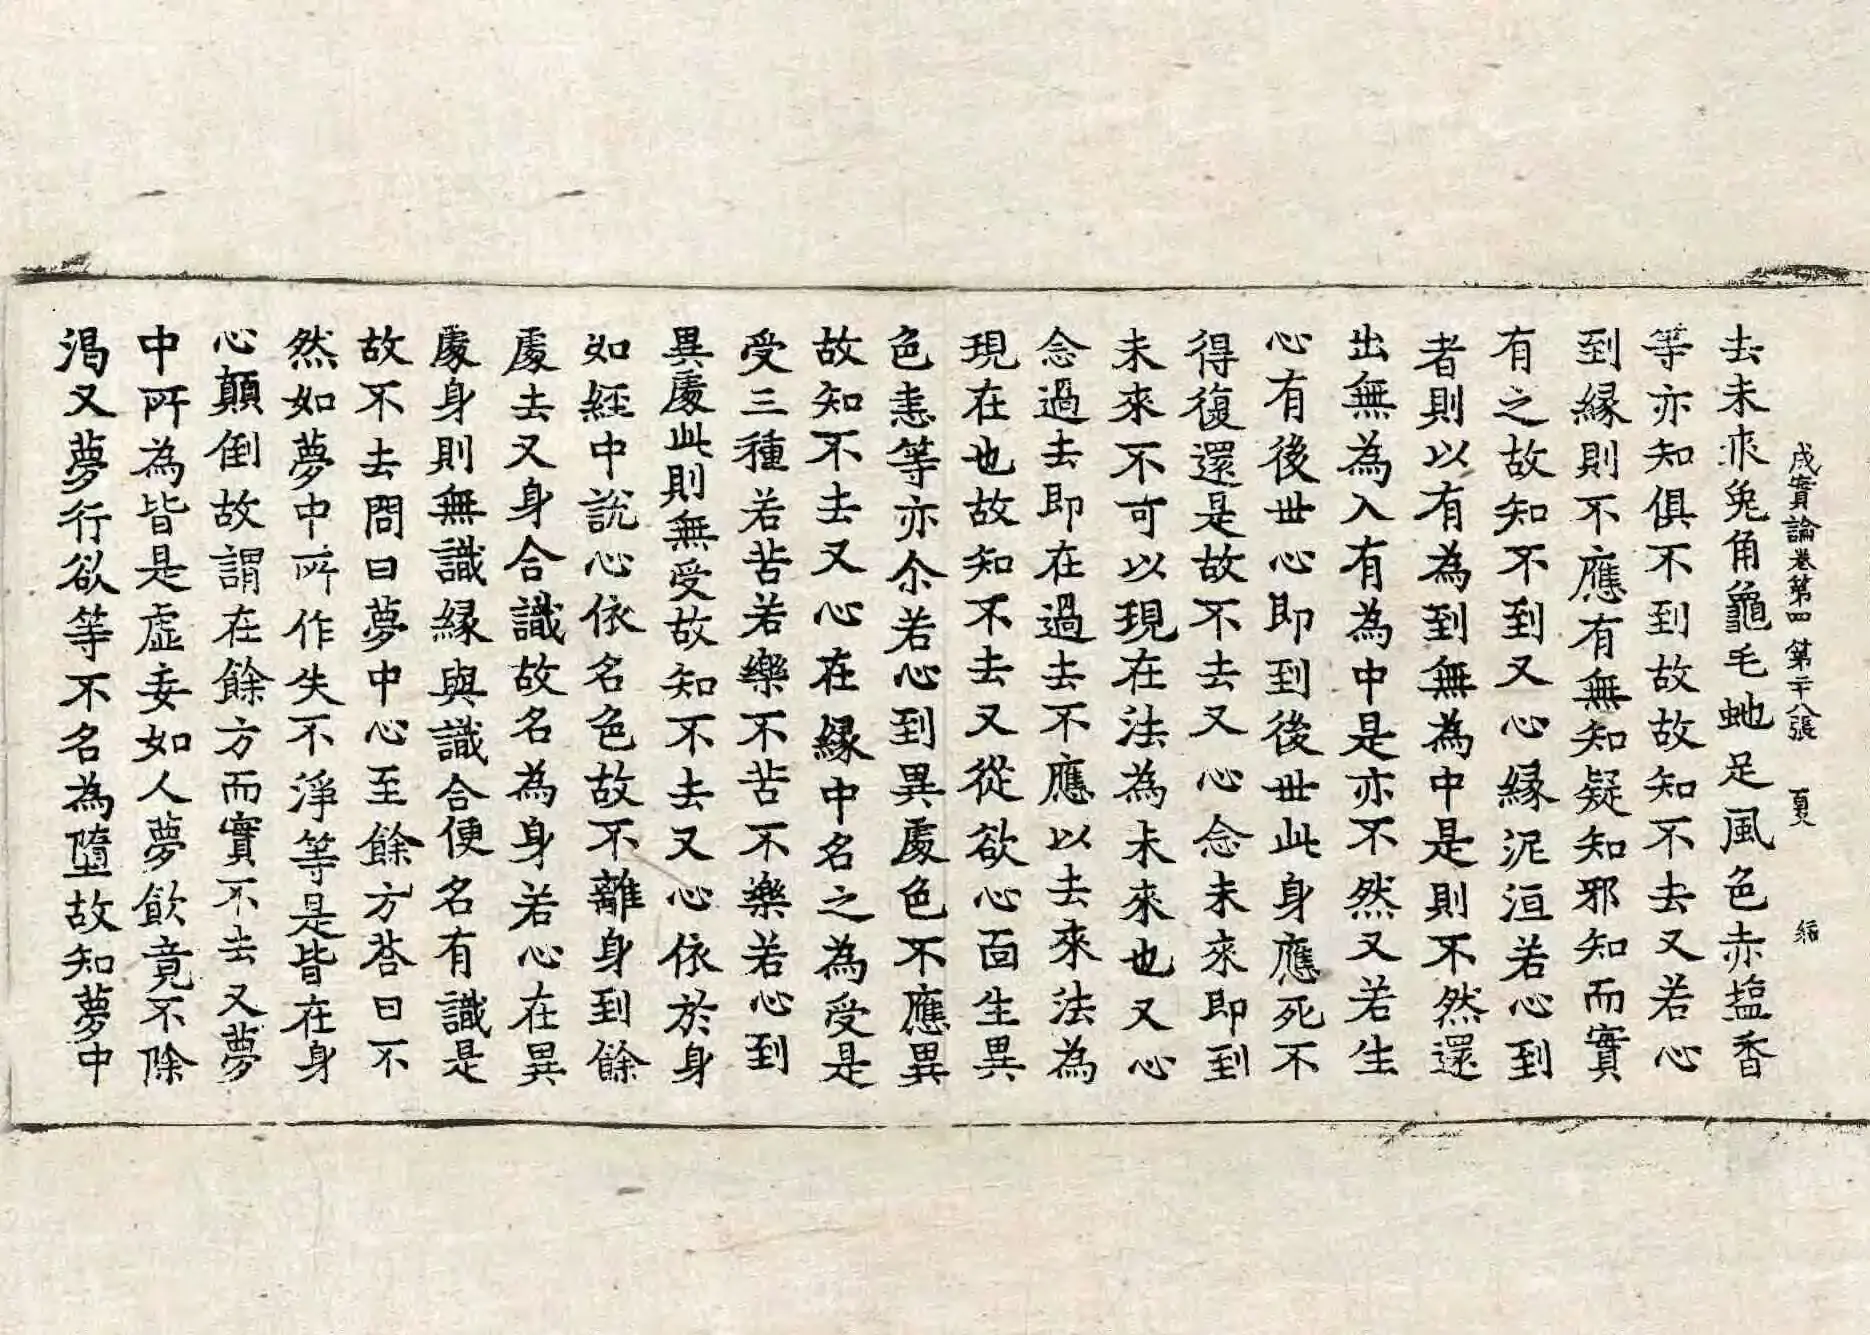 成實論卷第四 第二十八張 夏 䋈
去未來兔角龜毛虵足風色赤塩香
等亦知俱不到故故知不去又若心
到縁則不應有無知疑知邪知而實
有之故知不到又心縁泥洹若心到
者則以有為到無為中是則不然還
出無為入有為中是亦不然又若生
心有後世心即到後世此身應死不
得復還是故不去又心念未來即到
未來不可以現在法為未來也又心
念過去即在過去不應以去來法為
現在也故知不去又從欲心面生異
色恚等亦尒若心到異處色不應異
故知不去又心在縁中名之為受是
受三種若苦若樂不苦不樂若心到
異處此則無受故知不去又心依於身
如經中說心依名色故不離身到餘
處去又身合識故名為身若心在異
處身則無識縁與識合便名有識是
故不去問曰夢中心至餘方荅曰不
然如夢中所作失不淨等是皆在身
心顛倒故謂在餘方而實不去又夢
中所為皆是虛妄如人夢飲竟不除
渴又夢行欲等不名為墮故知夢中